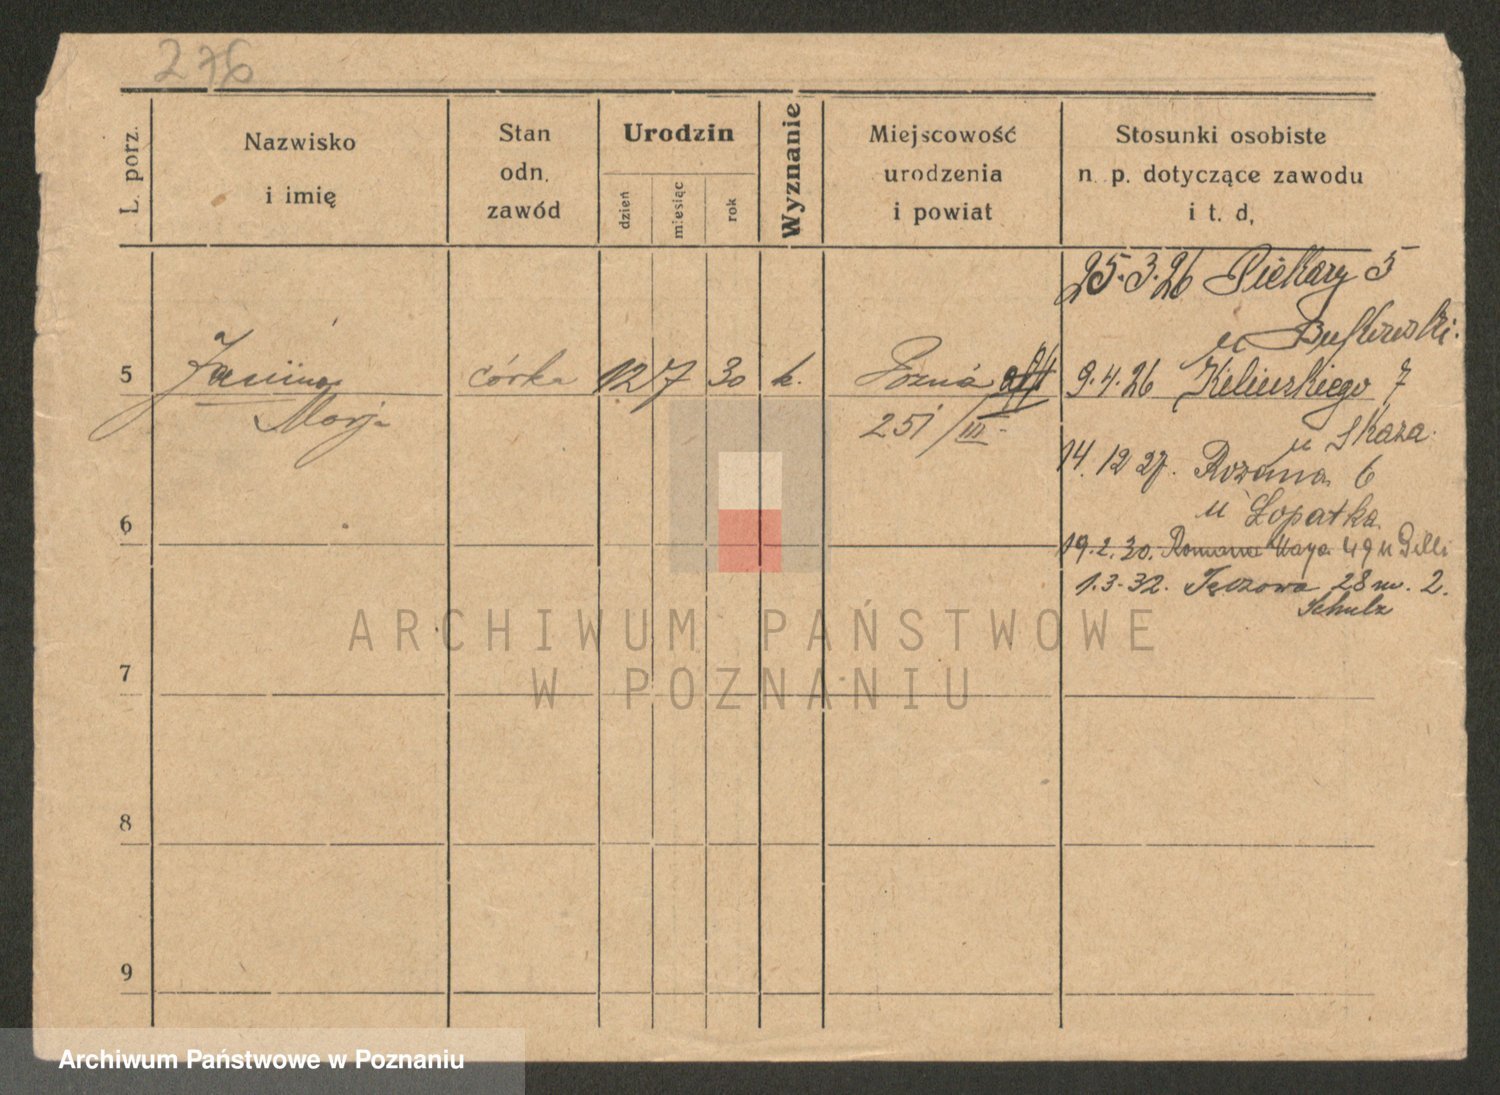 276
L. porz.
Nazwisko
i imię
Stan
odn.
zawód
Urodzin
dzień
miesiąc
rok
Wyznanie
Miejscowość
urodzenia
i powiat
Stosunki osobiste
n. p. dotyczące zawodu
i t. d.
25.3.26 Piekary 5
u
5
Janina
córka
12
7
30
k.
9.4.26
7
Marja
251/III
u Skaza
14.12 27. Różana 6
u Łopatka
6
19.2.30. 49
1.3.32. Tęczowa 28 m. 2.
Schulz
ARCHIWUM PAŃSTWOWE
W POZNANIU
7
8
9
Archiwum Państwowe w Poznaniu